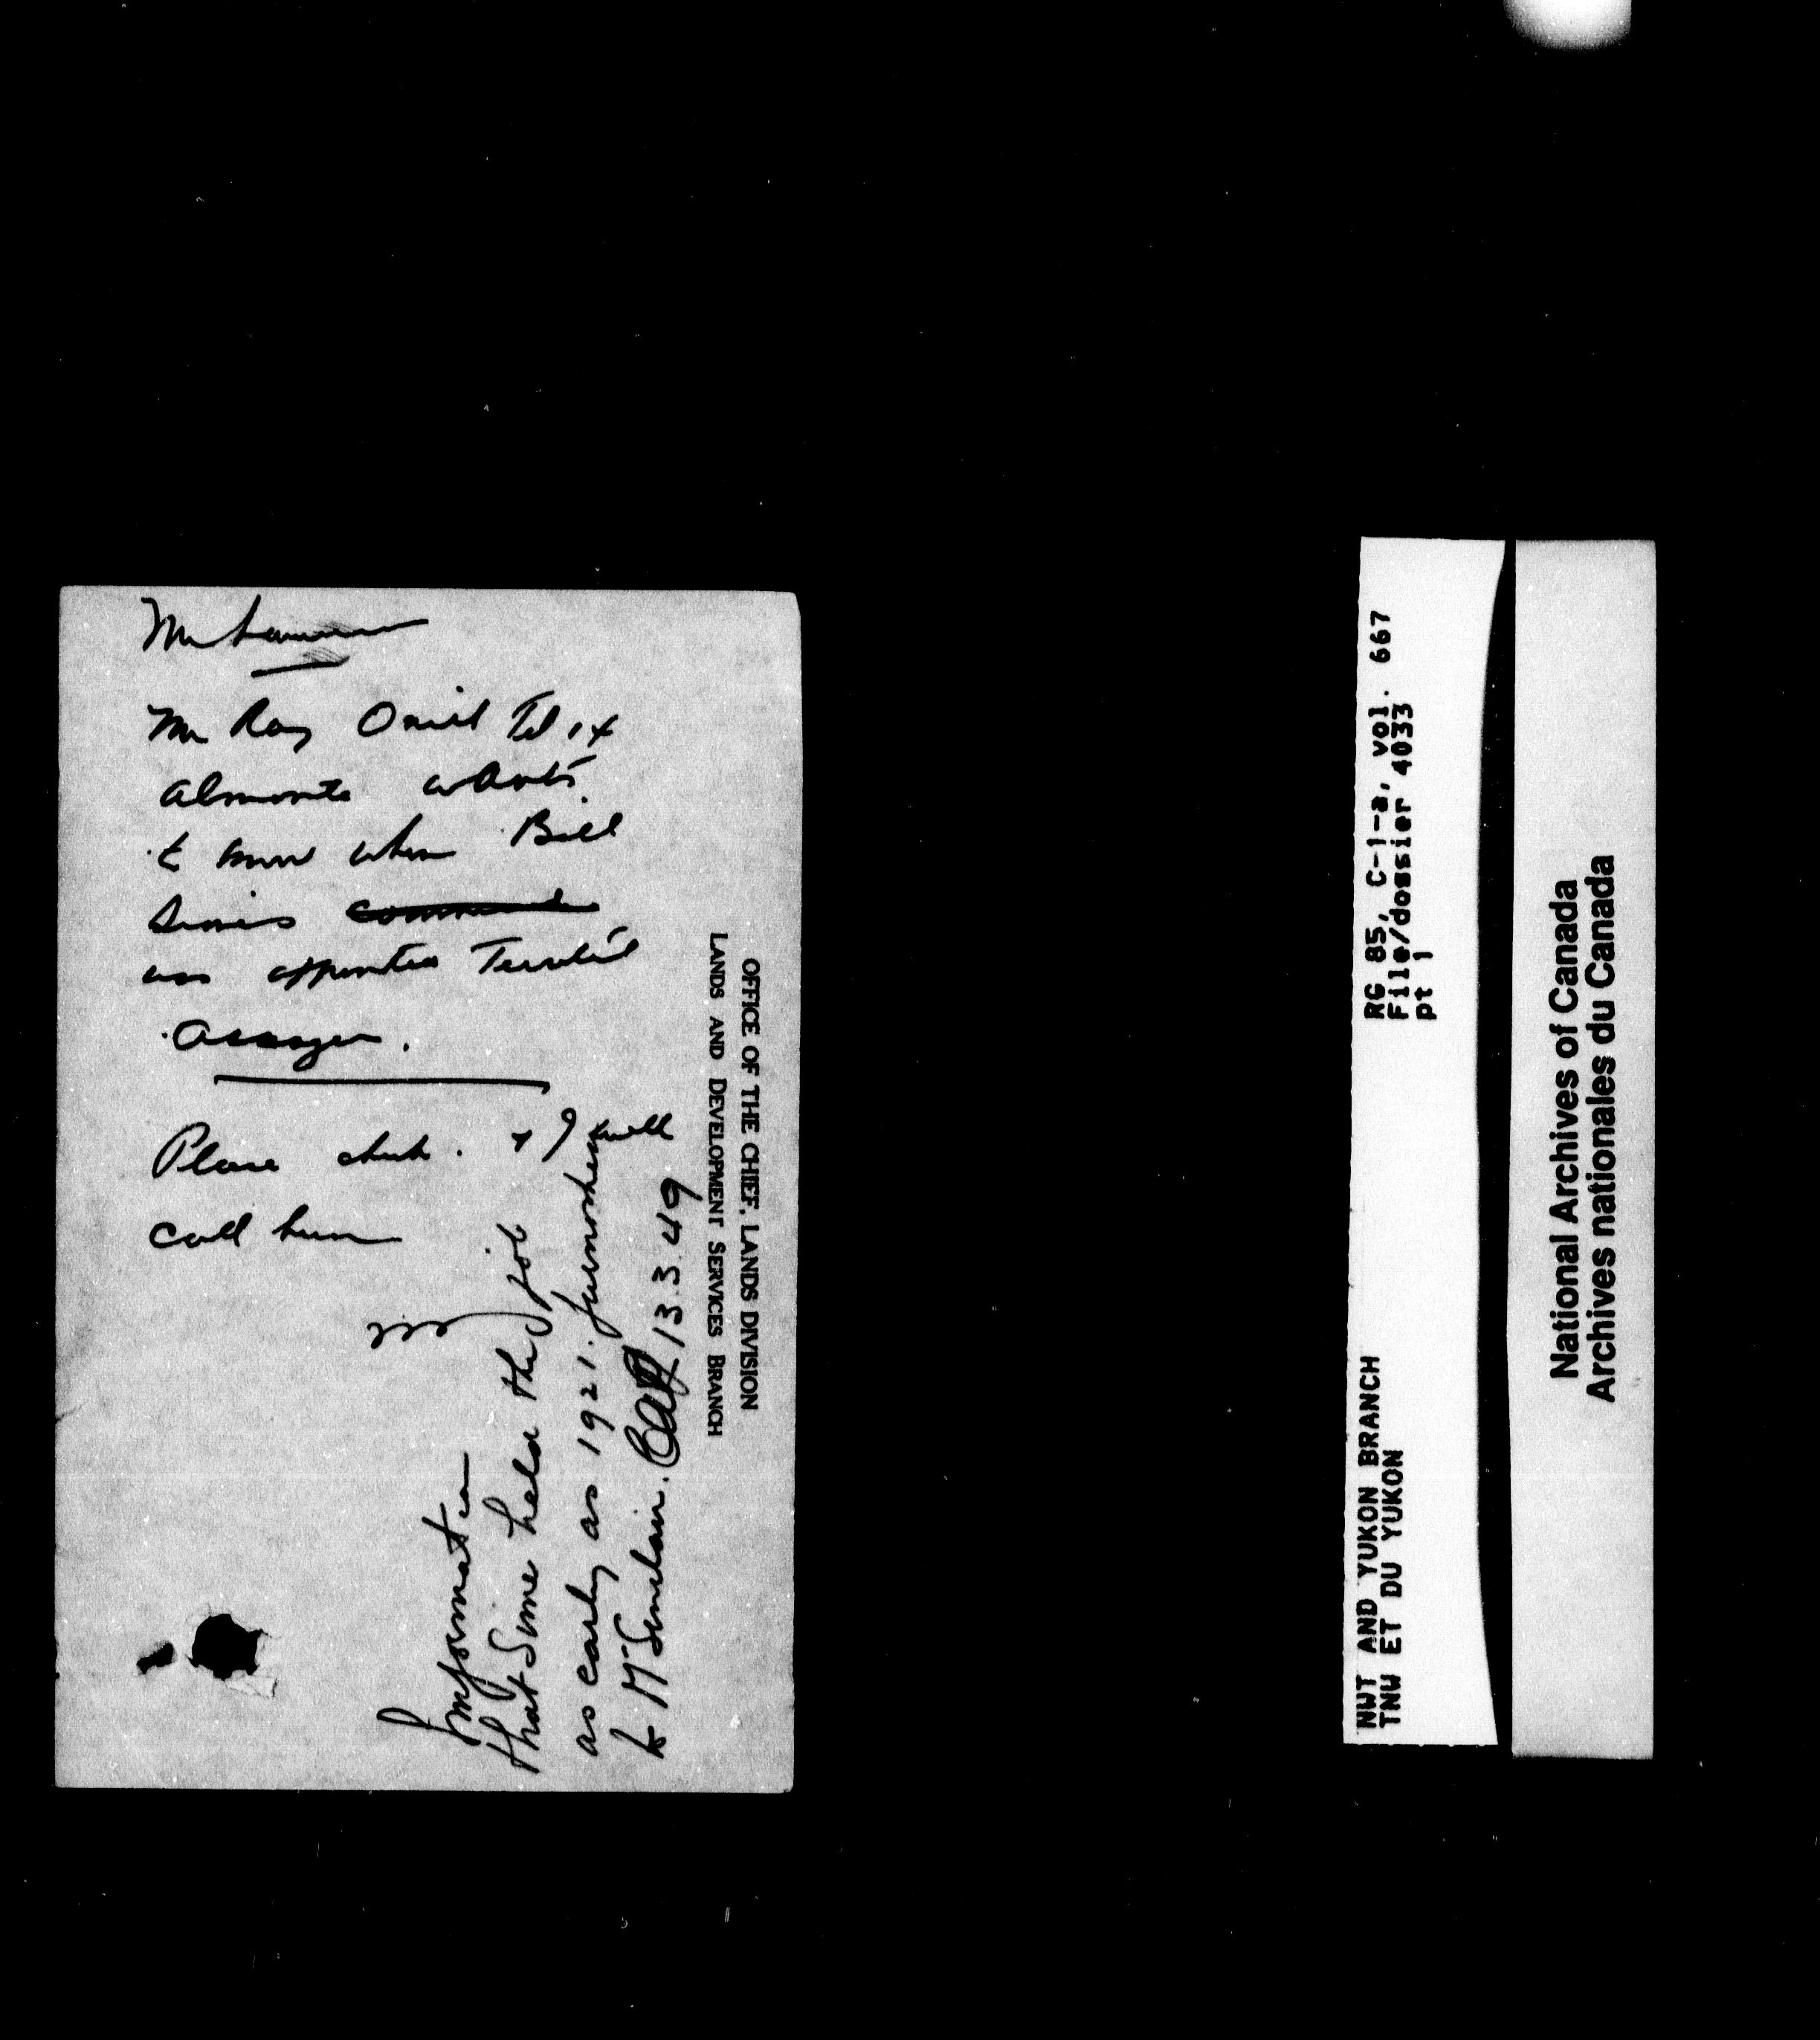 Mr
Mr Ray Oneil Tel 14
Almonte wants
to know when Bill
Simes
was appointed Territ'l
Assayer.
Please check. & I will
call him
Information
that Sime held the job
as early as 1921. furnished
to Mr Sinclair. 13.3.49
OFFICE OF THE CHIEF, LANDS DIVISION
LANDS AND DEVELOPMENT SERVICES BRANCH
RG 85, C-1-a, vol. 667
File/dossier 4033
pt 1
NWT AND YUKON BRANCH
TNW ET DU YUKON
National Archives of Canada
Archives nationales du Canada